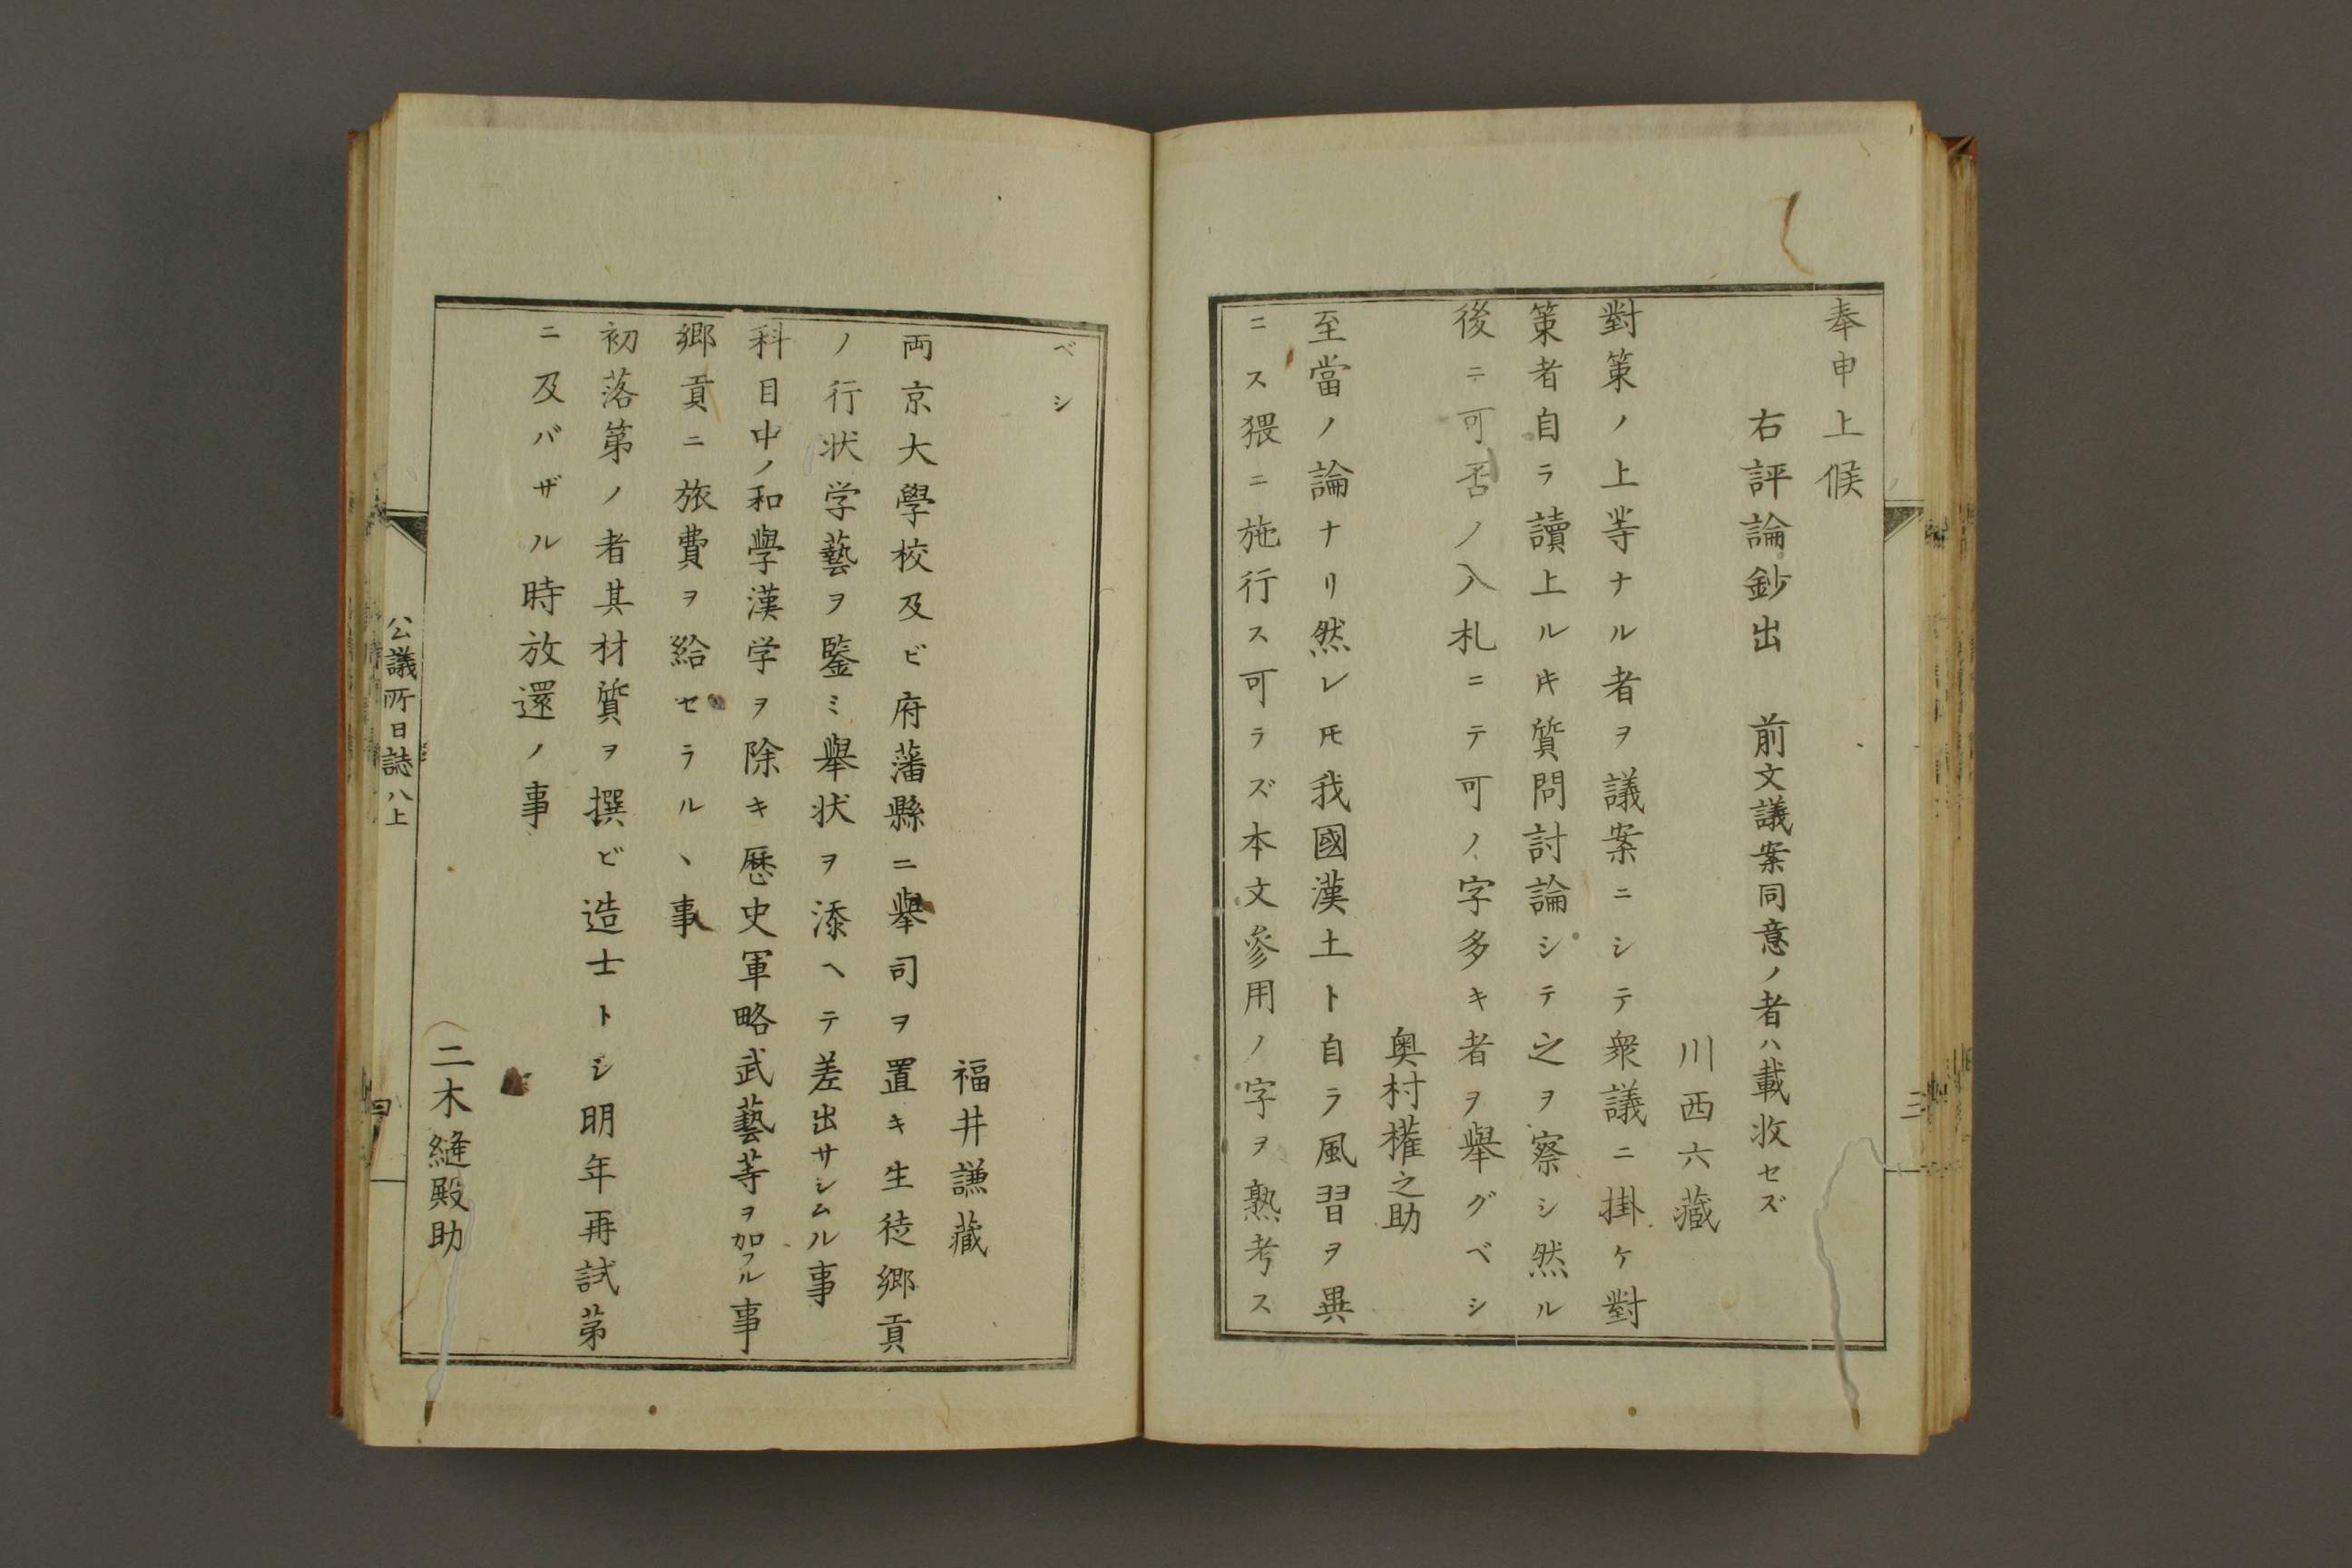 奉申上候
右評論鈔出　前文議案同意ノ者ハ載收セズ
川西六藏
對策ノ上等ナル者ヲ議案ニシテ衆議ニ掛ケ對
策者自ラ讀上ル𪜈質問討論シテ之ヲ察シ然ル
後ニ可否ノ入札ニテ可ノ字多キ者ヲ舉グベシ
奥村權之助
至當ノ論ナリ然レ𪜈我國漢土ト自ラ風習ヲ異
ニス猥ニ施行ス可ラズ本文參用ノ字ヲ熟考ス
三
ベシ
福井謙藏
両京大學校及ビ府藩縣ニ舉司ヲ置キ生徒郷貢
ノ行状学藝ヲ鑒ミ舉状ヲ添ヘテ差出サシムル事
科目中ノ和學漢学ヲ除キ歷史軍略武藝等ヲ加フル事
郷貢ニ旅費ヲ給セラルヽ事
初落第ノ者其材質ヲ撰ビ造士トシ明年再試第
ニ及バザル時放還ノ事
二木縫殿助
公議所日誌八上
四